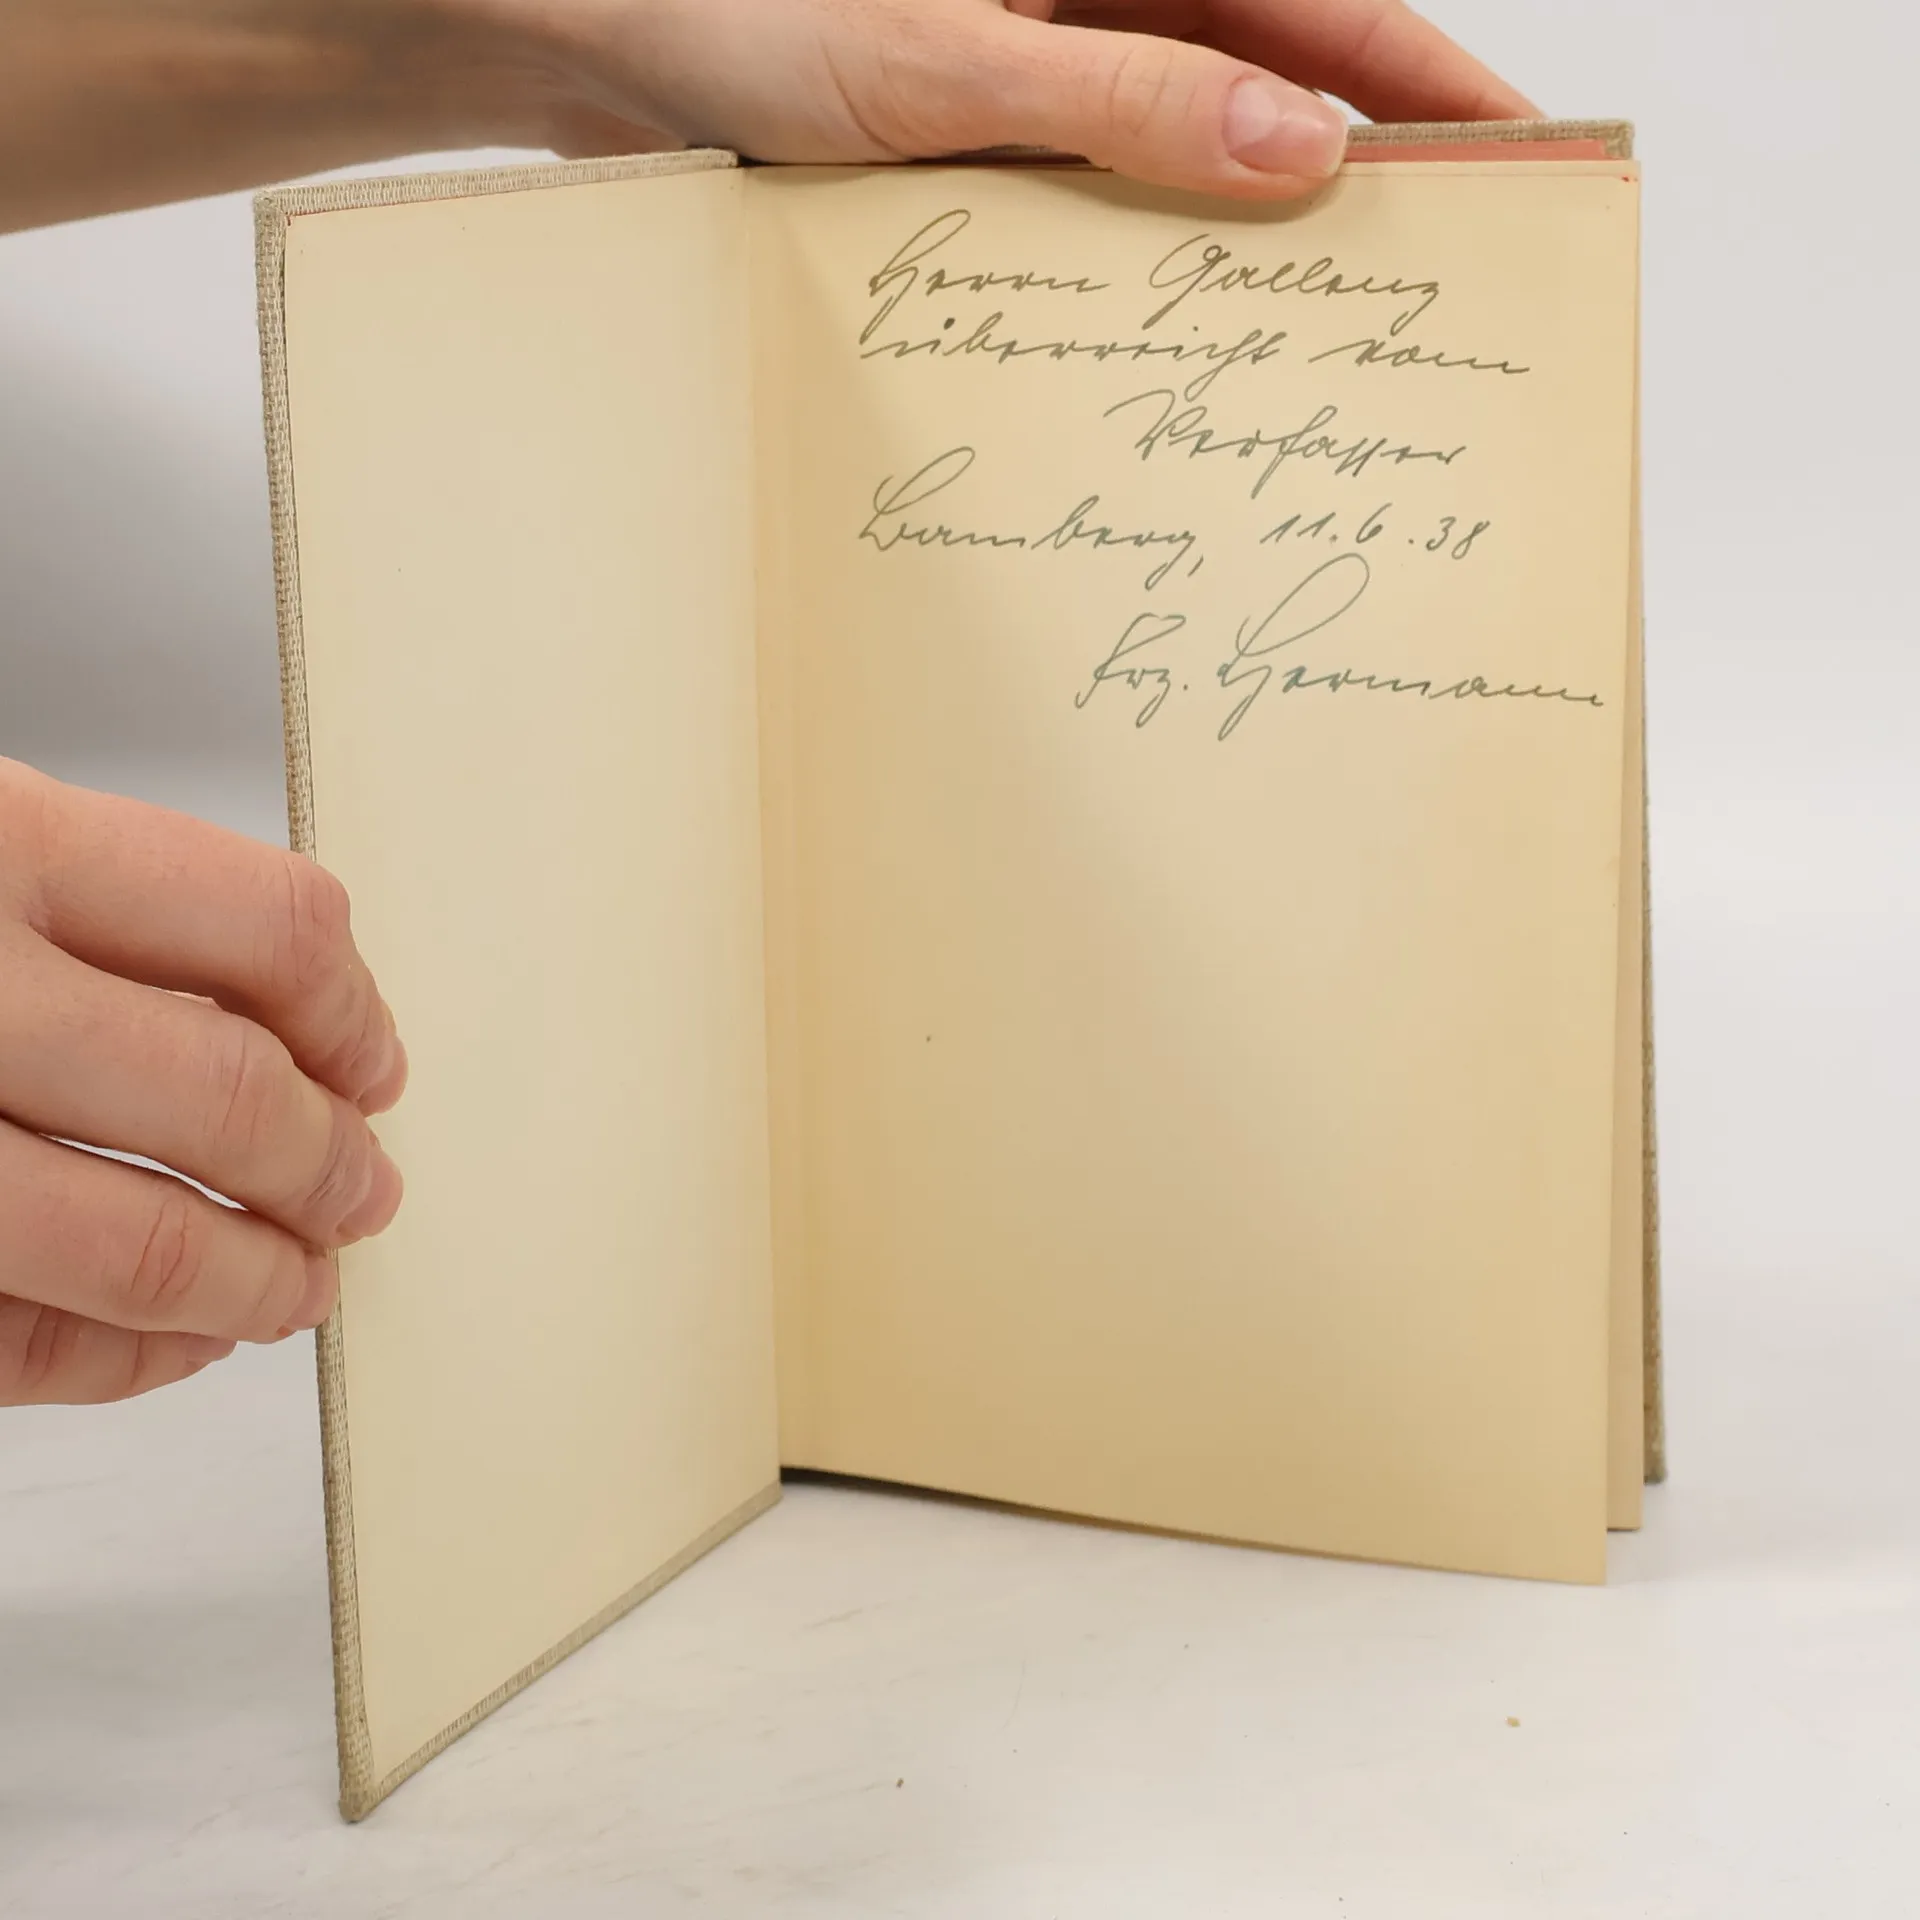 Herrn Gallenz
überreicht vom
Verfasser
Bamberg, 11.6.38
Frz. Hermann